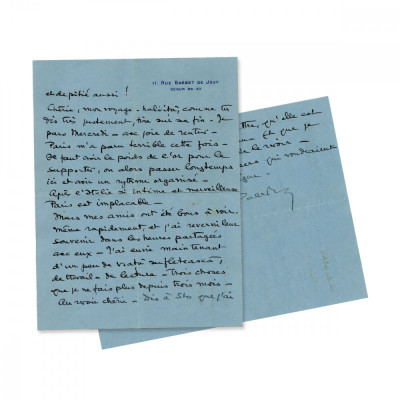 11 RUE BARBET DE JOUY
SÉGUR
et de pitié aussi !
Chérie, mon voyage - comme tu
dis très justement, tire sur sa fin - Je
pars Mercredi - avec joie de rentrer -
Paris m'a paru terrible cette fois -
Il faut avoir le poids de l'or pour le
supporter, ou alors passer longtemps
ici et avoir un rythme organisé -
Après l'Italie si intime et merveilleuse
Paris est implacable -
Mais mes amis ont été bons à voir,
même rapidement, et j'ai reversé leur
souvenir dans les heures partagées
avec eux - J'ai envie maintenant
d'un peu de vraie
de travail - de lecture - Trois choses
que je ne fais plus depuis trois mois -
Au revoir chérie - Dis à que j'ai
qu'elle est
et que je
le revoir -
qui voudraient